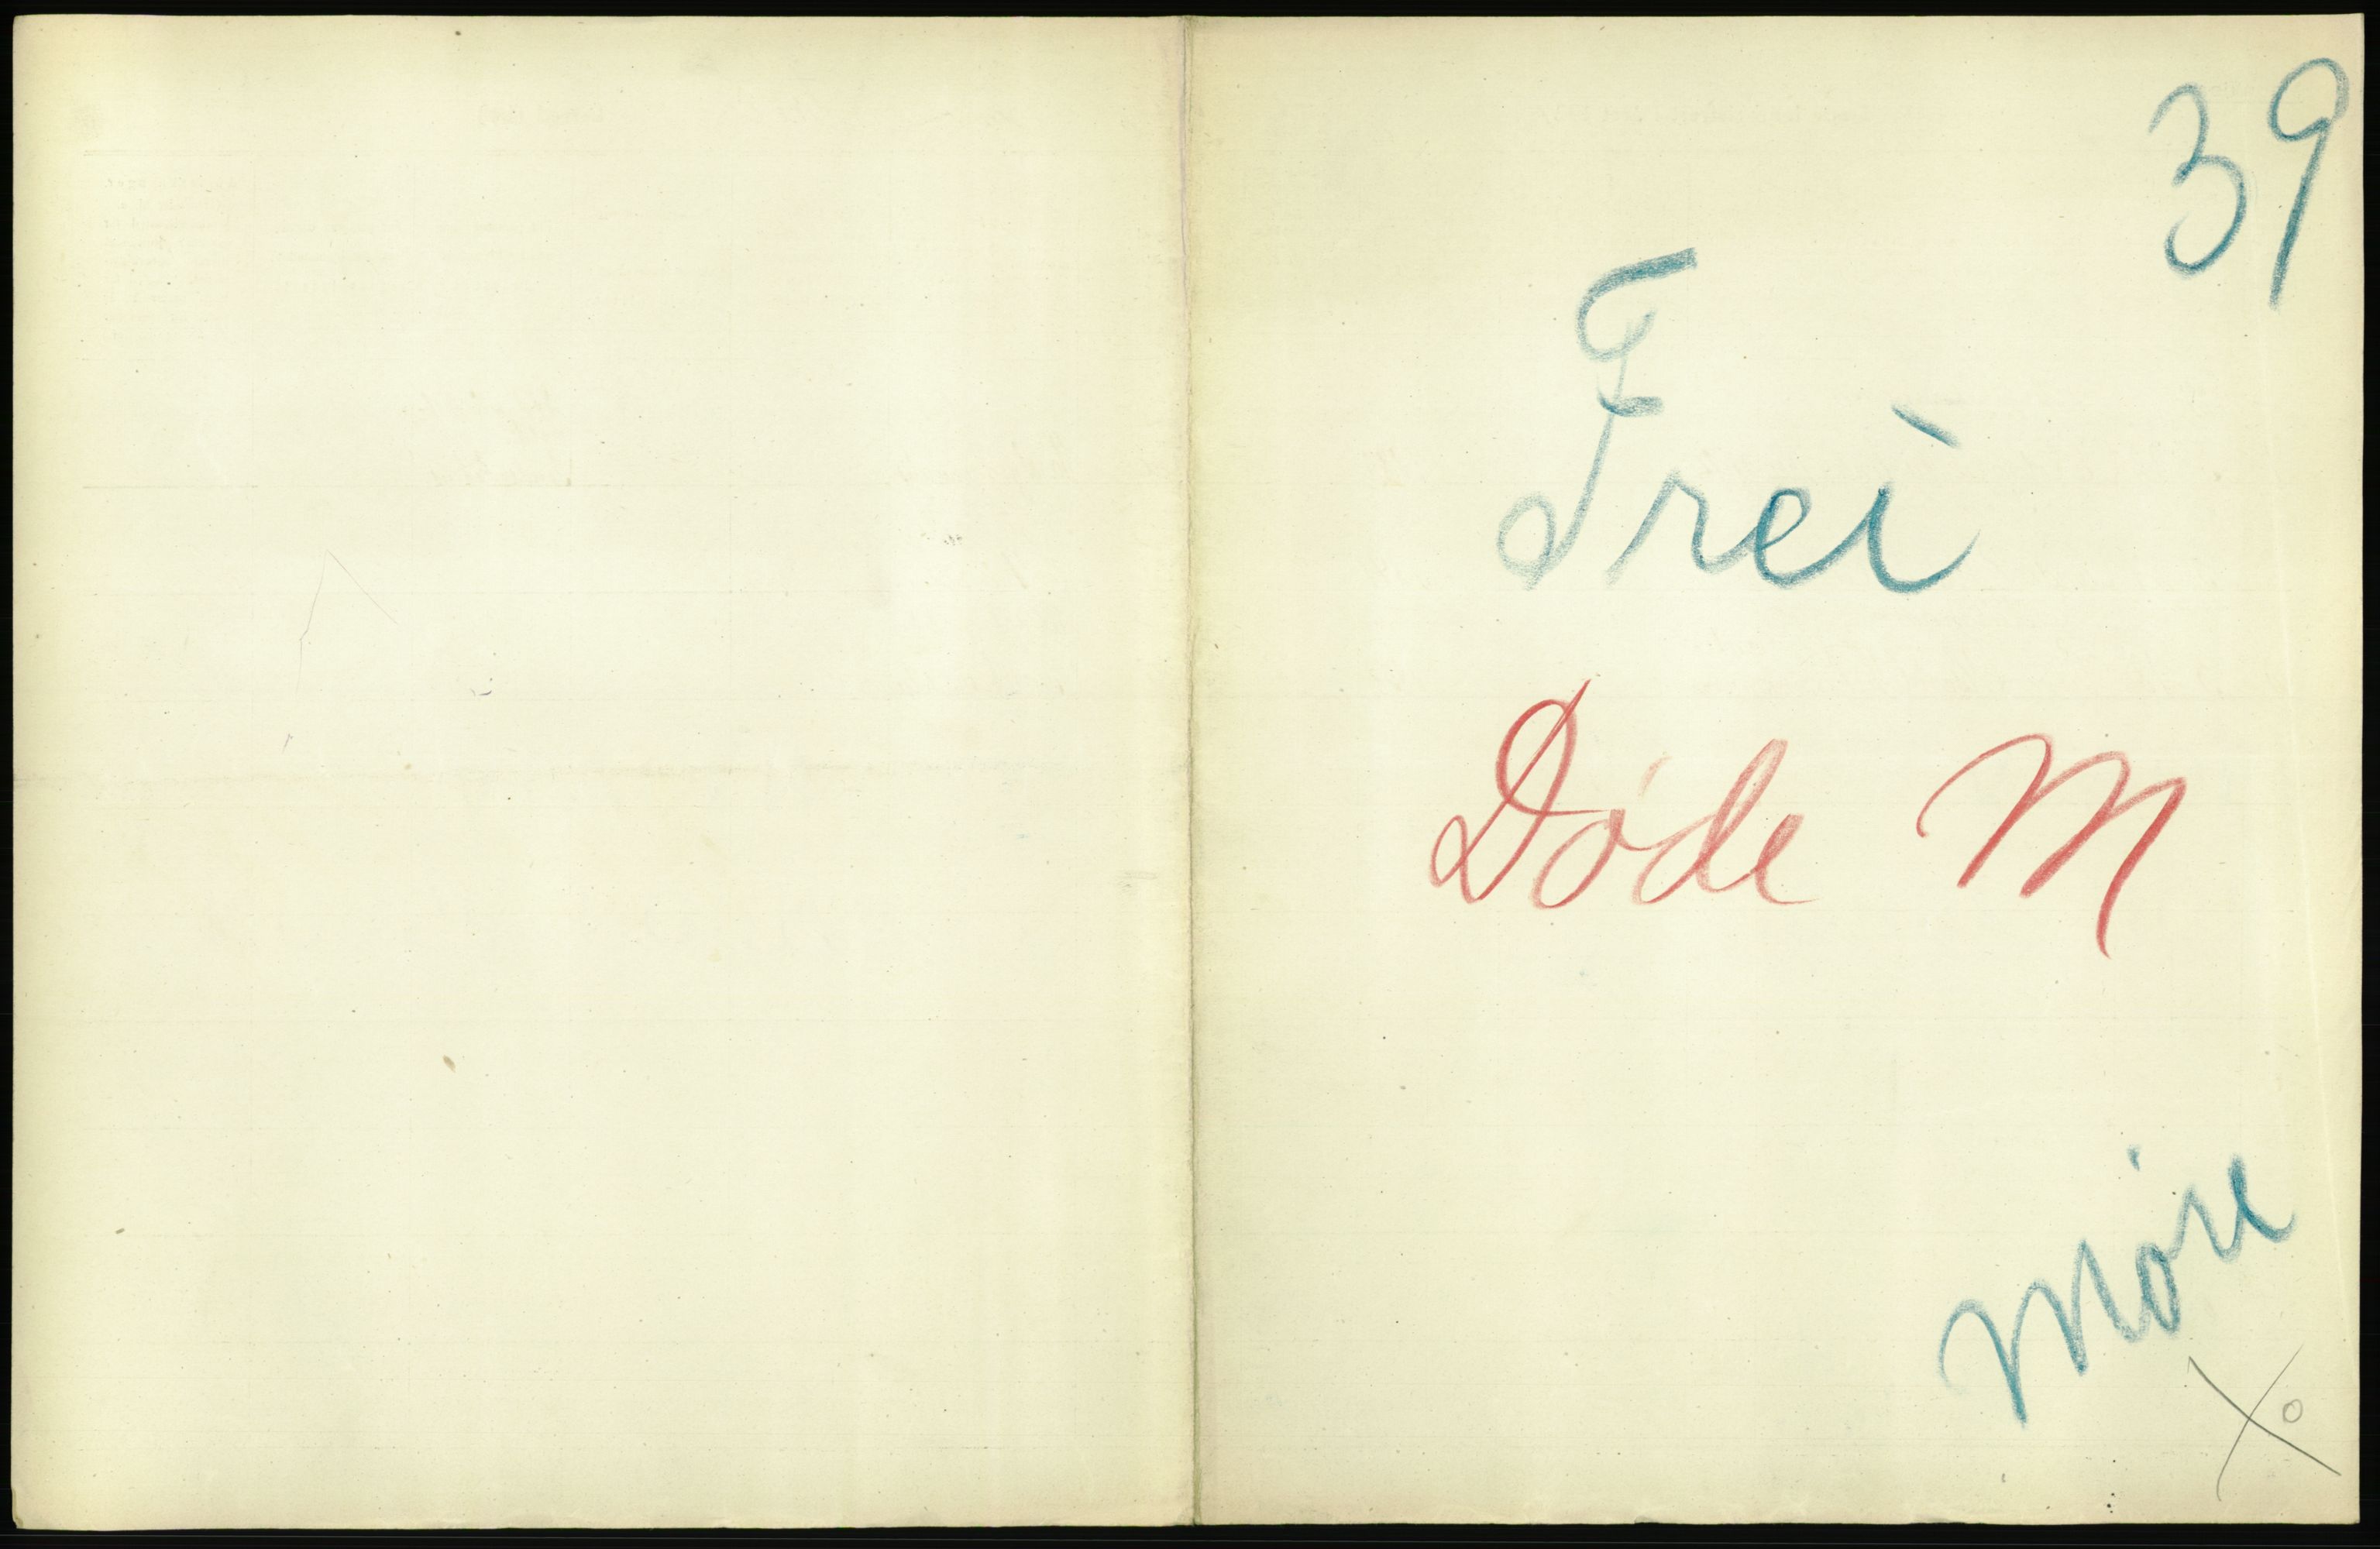 39
Frei
Døde M
Møre
X o